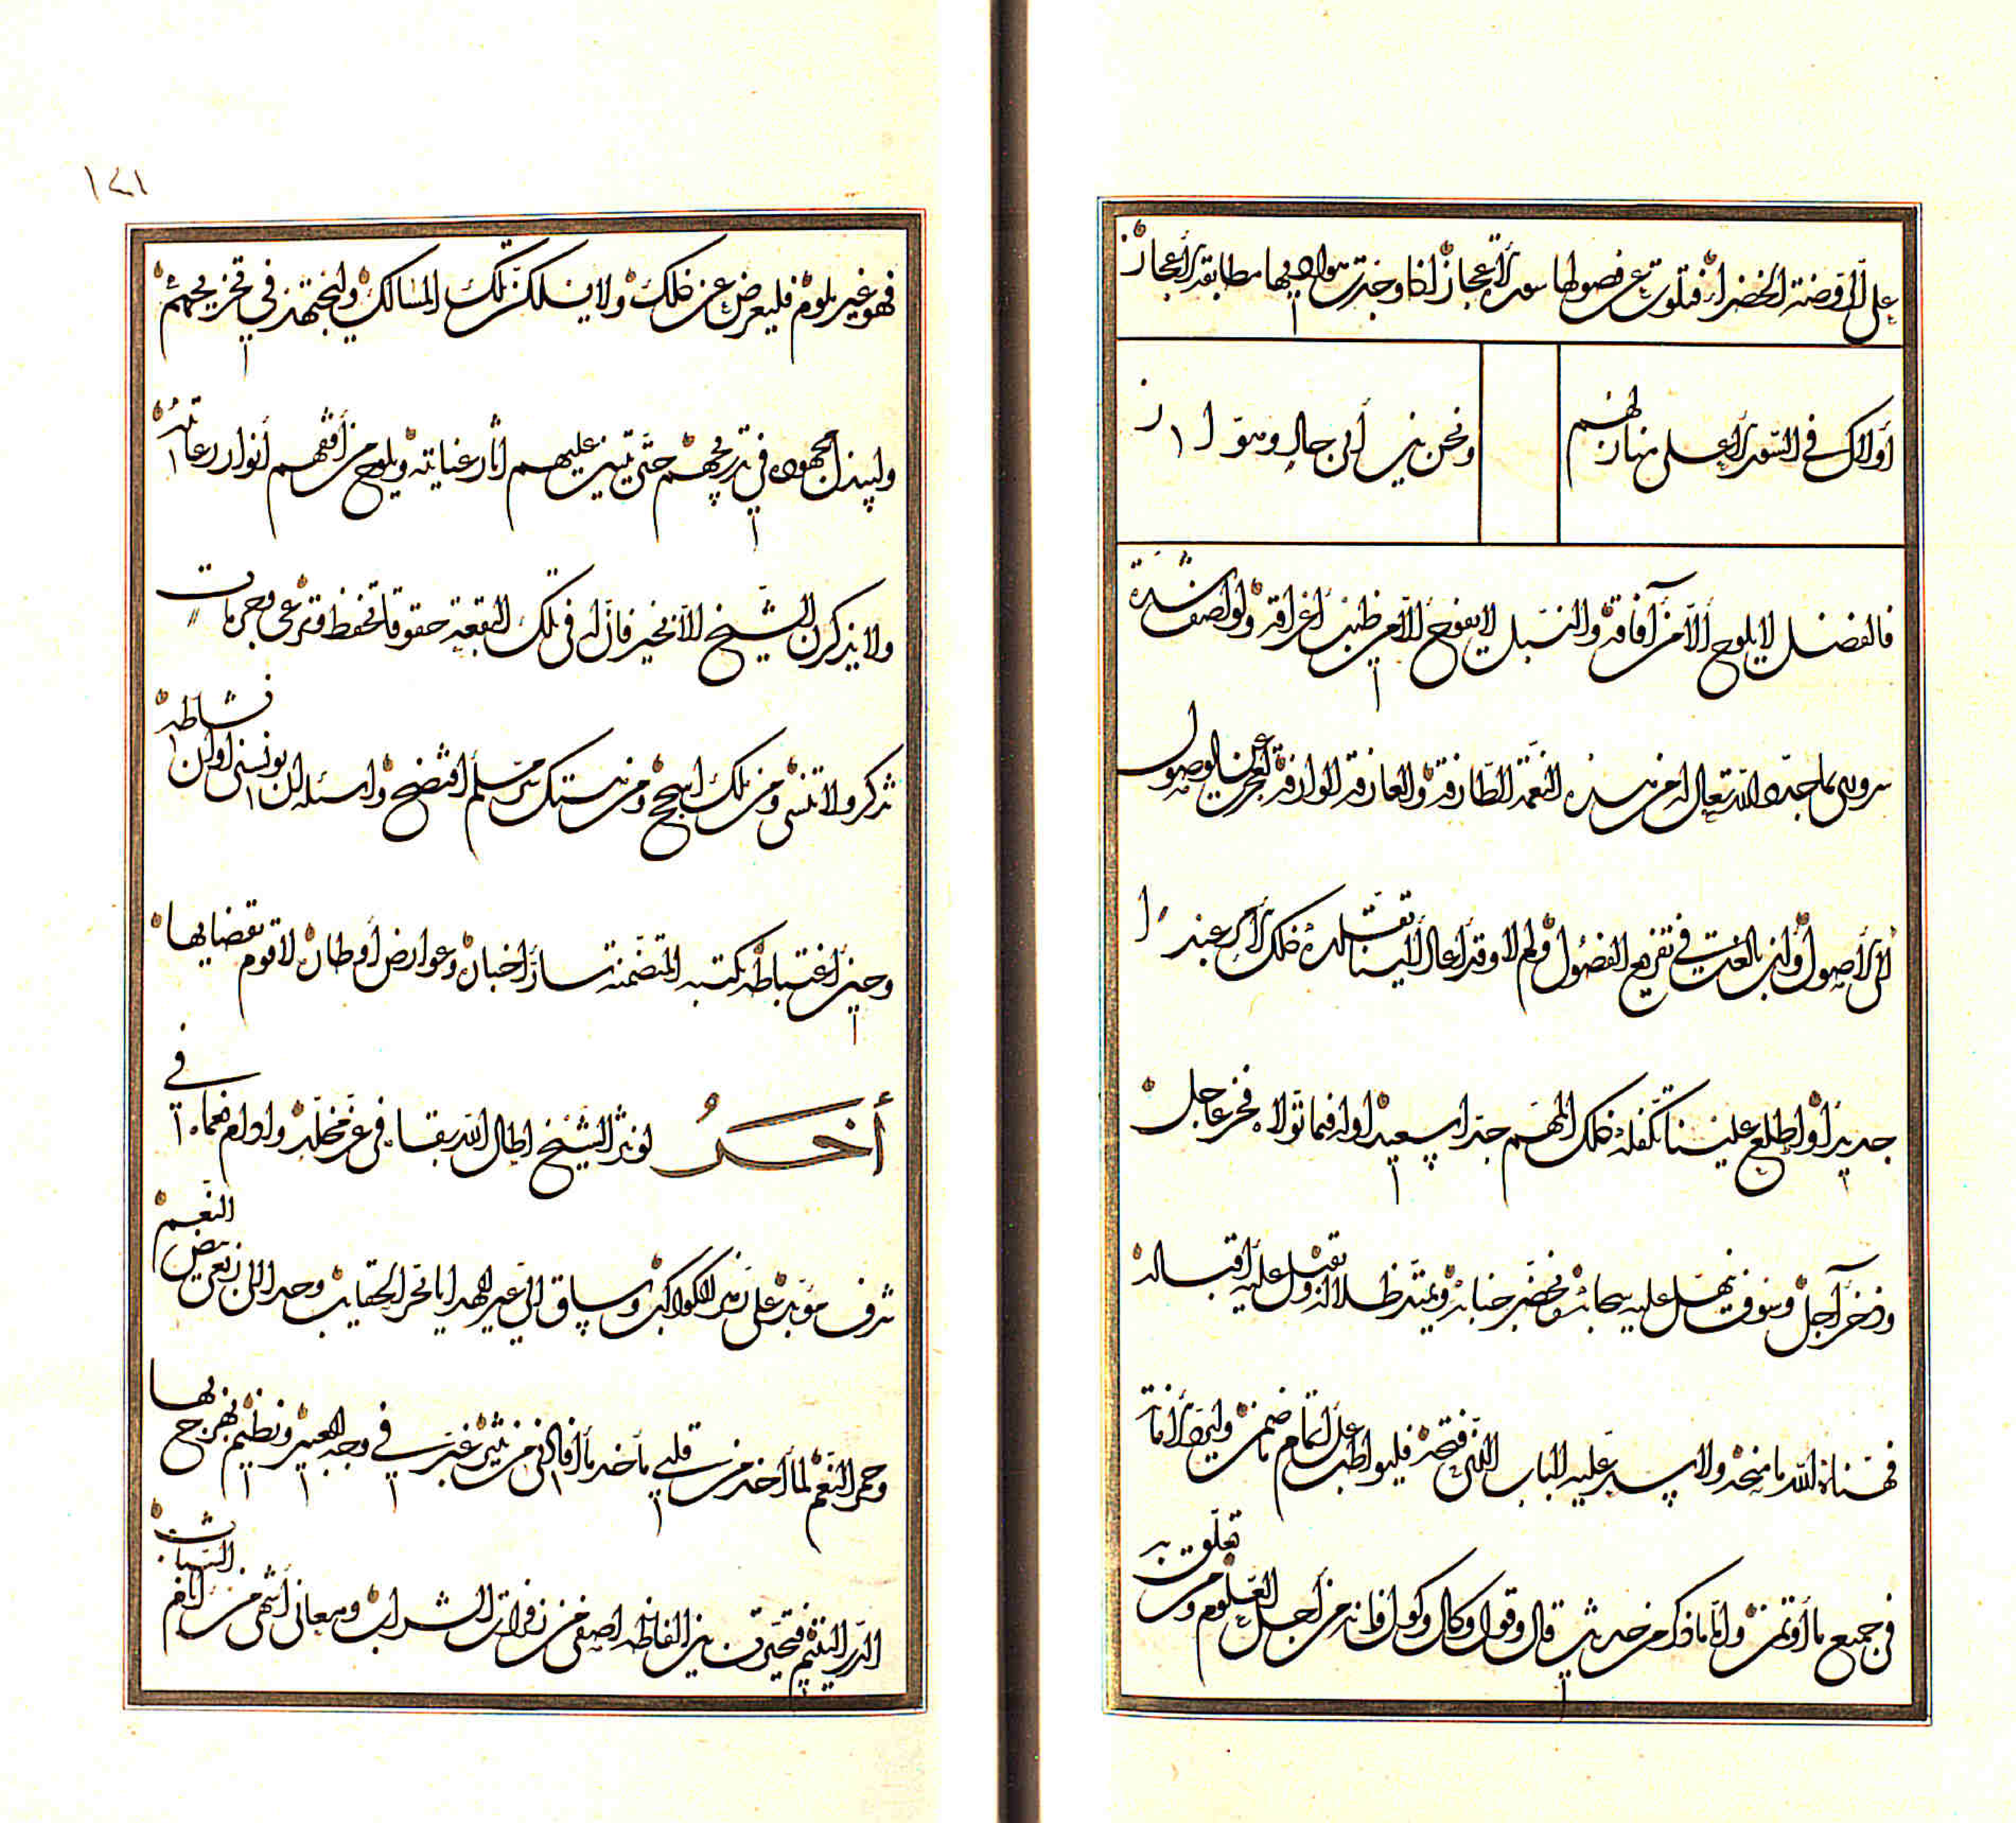 على الروضة الخضراء فتلوت من فصولها سور الاعجاز اذا وجدت هواديها مطابقة الاعجاز
اولاك في السور الاعلى منازلهم
ونحن بنى ابى جال وهوّاز
فالفضل لا يلوح الا من آفاقه والنبل لا يفوح الا عن طيب اعراقه ولو اصف شدة
سرورى بما جدده الله تعالى له من هذه النعمة الطارفة والعارفة الوارفة لعجزت عن الوصول
الى الاصول وان بالغت في تفريع الفضول ولم لا وقد اعاد الينا تقلده ذلك الامر عيدا
جديدا واطلع علينا تكفله ذلك المهم جدا سعيدا وله فيما تولاه فخر عاجل
وذخر آجل وسوف تنهل عليه سحائبه ويخضر جنابه ويمتد ظلاله وتقبل عليه اقباله
فهنأه الله ما منحه ولا سد عليه الباب الذى فتحه فليواظب على اتمام ما ضمن وليؤد الامانة
في جميع ما اؤتمن واما ما ذكر من حديث قال وقول وكال وكول فانه من اجل العلوم ومن تعلق به
١٤١
فهو غير ملوم فليعرض عن ذلك ولا يسلكن تلك المسالك وليجتهد في تخريجهم
وليبذل مجهوده في تدريجهم حتى تبين عليهم آثار عنايته ويلوح من افقهم انوار رعايته
ولا يذكرن الشيخ الا بخير فان له في تلك البقعة حقوقا تحفظ وترعى وحرمات
تذكر ولا تنسى ومن ملك اسجح ومن هتك ستر مسلم افتضح واسئله ان يونسنى اوان نشاطه
وحين اغتباطه بكتبه المتضمنة سار اخباره وعوارض اوطاره لاقوم بقضايها
أخر لو نثر الشيخ اطال الله بقاءه في عز مخلد وادام نعماءه في
شرف مؤبد على زهر الكواكب وساق الى عير الهدايا بحر الحقايب وحدا الى زعر بيض النعم
وحمر النعم لما اخذ من قلبى مأخذ ما افادنى من نثر غبر في وجه العبير ونظيم بهرج بها
الدر اليتيم فتحيرت بين الفاظه اصفى من زفرات الشراب ومعانى اشهى من ايام الشباب